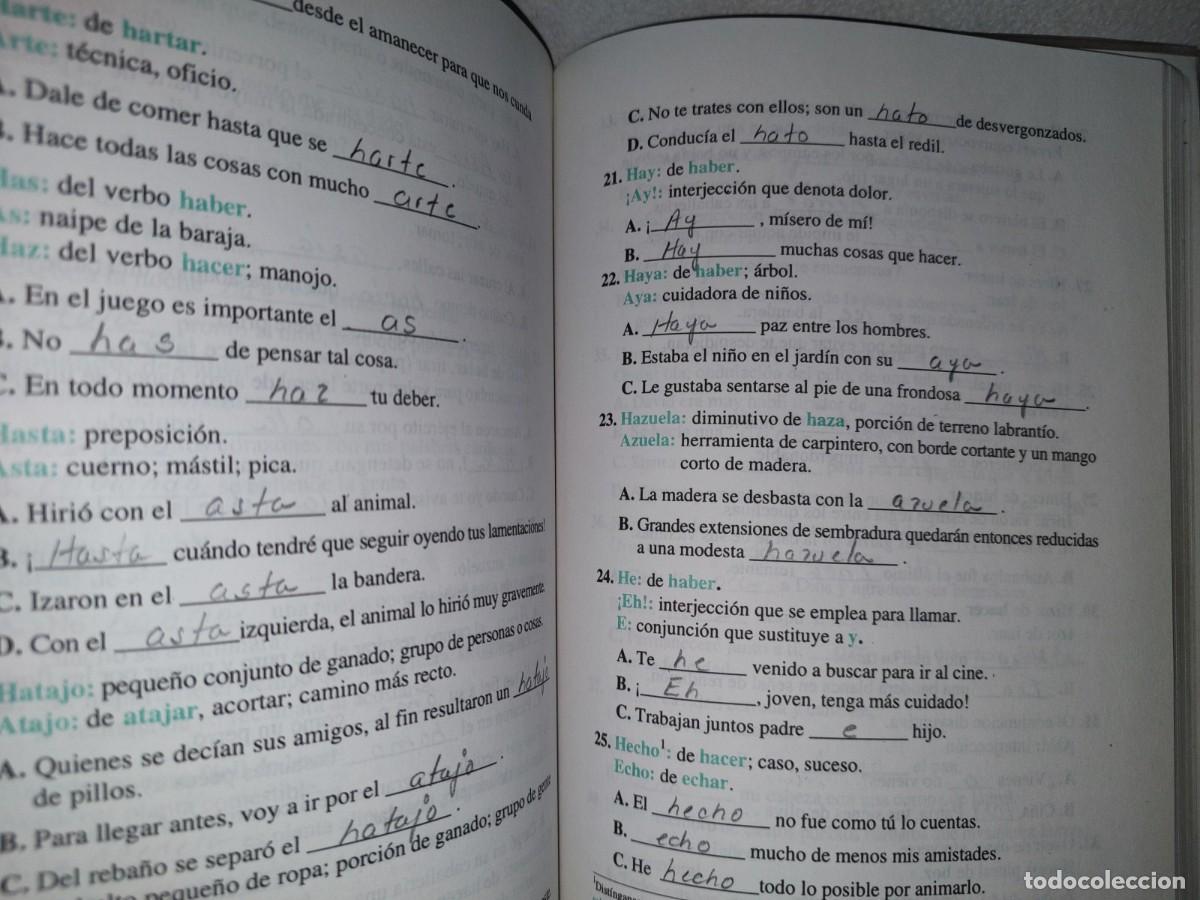 desde el amanecer para que nos cunda
Harte: de hartar.
Arte: técnica, oficio.
A. Dale de comer hasta que se harte.
B. Hace todas las cosas con mucho arte.
Has: del verbo haber.
As: naipe de la baraja.
Haz: del verbo hacer; manojo.
A. En el juego es importante el as.
B. No has de pensar tal cosa.
C. En todo momento haz tu deber.
Hasta: preposición.
Asta: cuerno; mástil; pica.
A. Hirió con el asta al animal.
B. ¡Hasta cuándo tendré que seguir oyendo tus lamentaciones!
C. Izaron en el asta la bandera.
D. Con el asta izquierda, el animal lo hirió muy gravemente.
Hatajo: pequeño conjunto de ganado; grupo de personas o cosas.
Atajo: de atajar, acortar; camino más recto.
A. Quienes se decían sus amigos, al fin resultaron un hatajo
de pillos.
B. Para llegar antes, voy a ir por el atajo.
C. Del rebaño se separó el hatajo.
pequeño de ropa; porción de ganado; grupo de gente
C. No te trates con ellos; son un hato de desvergonzados.
D. Conducía el hato hasta el redil.
21. Hay: de haber.
¡Ay!: interjección que denota dolor.
A. ¡Ay, mísero de mí!
B. Hay muchas cosas que hacer.
22. Haya: de haber; árbol.
Aya: cuidadora de niños.
A. Haya paz entre los hombres.
B. Estaba el niño en el jardín con su aya.
C. Le gustaba sentarse al pie de una frondosa haya.
23. Hazuela: diminutivo de haza, porción de terreno labrantío.
Azuela: herramienta de carpintero, con borde cortante y un mango
corto de madera.
A. La madera se desbasta con la azuela.
B. Grandes extensiones de sembradura quedarán entonces reducidas
a una modesta hazuela.
24. He: de haber.
¡Eh!: interjección que se emplea para llamar.
E: conjunción que sustituye a y.
A. Te he venido a buscar para ir al cine.
B. ¡Eh, joven, tenga más cuidado!
C. Trabajan juntos padre e hijo.
25. Hecho¹: de hacer; caso, suceso.
Echo: de echar.
A. El hecho no fue como tú lo cuentas.
B. echo mucho de menos mis amistades.
C. He hecho todo lo posible por animarlo.
todocoleccion